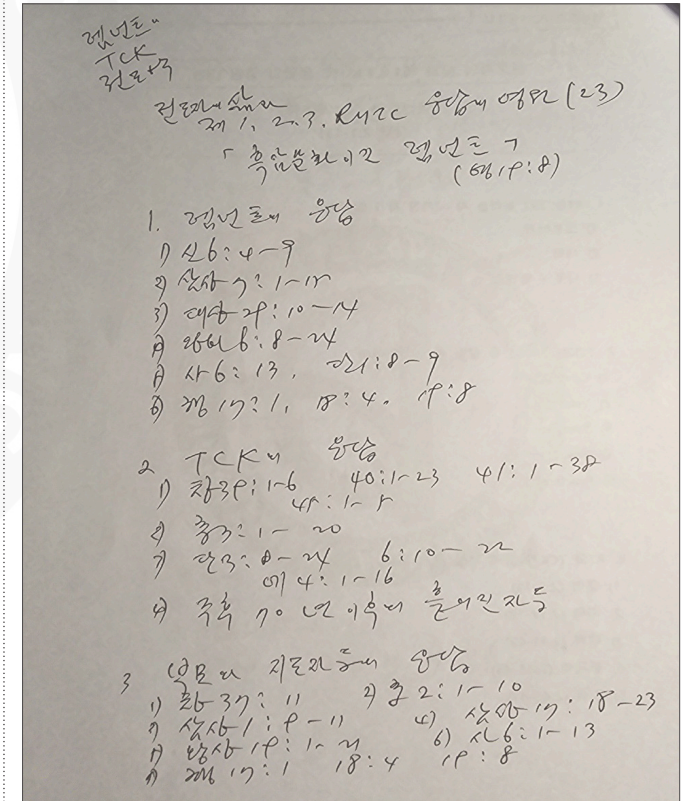 렘넌트,,
TCK
전도학
전도자의 삶과
제 1, 2, 3, RUTC 응답의 영원 (23)
「흑암문화 이긴 렘넌트」
(행 19:8)
1. 렘넌트의 응답
1) 신 6:4-9
2) 삼상 7:1-15
3) 대상 29:10-14
4) 왕하 6:8-24
5) 사 6:13, 단 1:8-9
6) 행 17:1, 18:4, 19:8
2 TCK의 응답
1) 창 39:1-6 40:1-23 41:1-38
45:1-5
2) 출 3:1-20
3) 단 3:8-24 6:10-22
에 4:1-16
4) 주후 70년 이후의 흩어진 자들
3 부모와 지도자들의 응답
1) 창 37:11 2) 출 2:1-10
3) 삼상 1:9-11 4) 삼상 17:18-23
5) 왕상 19:1-21 6) 신 6:1-13
7) 행 17:1 18:4 19:8